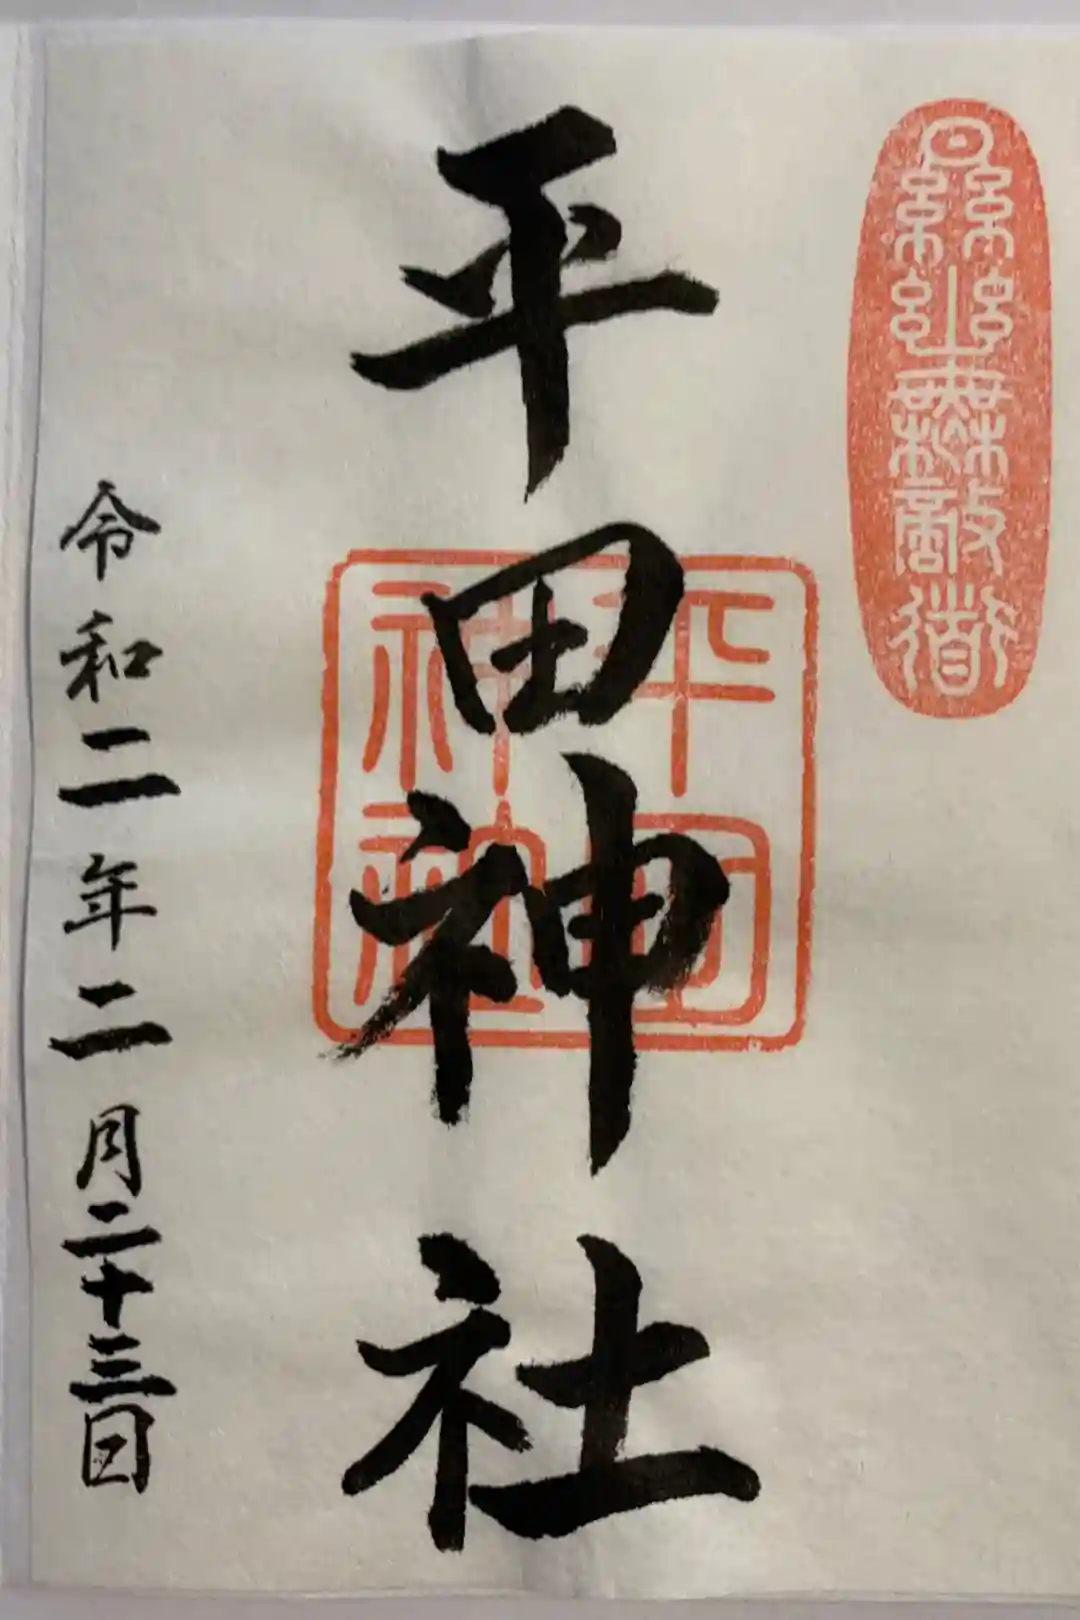 平田神社
平田神社
令和二年二月二十三日